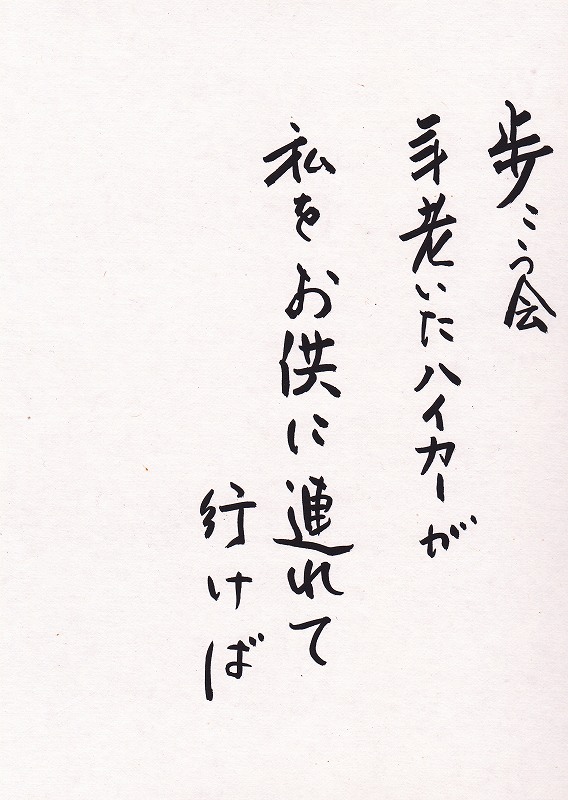 歩こう会
年老いたハイカーが
私をお供に連れて
行けば